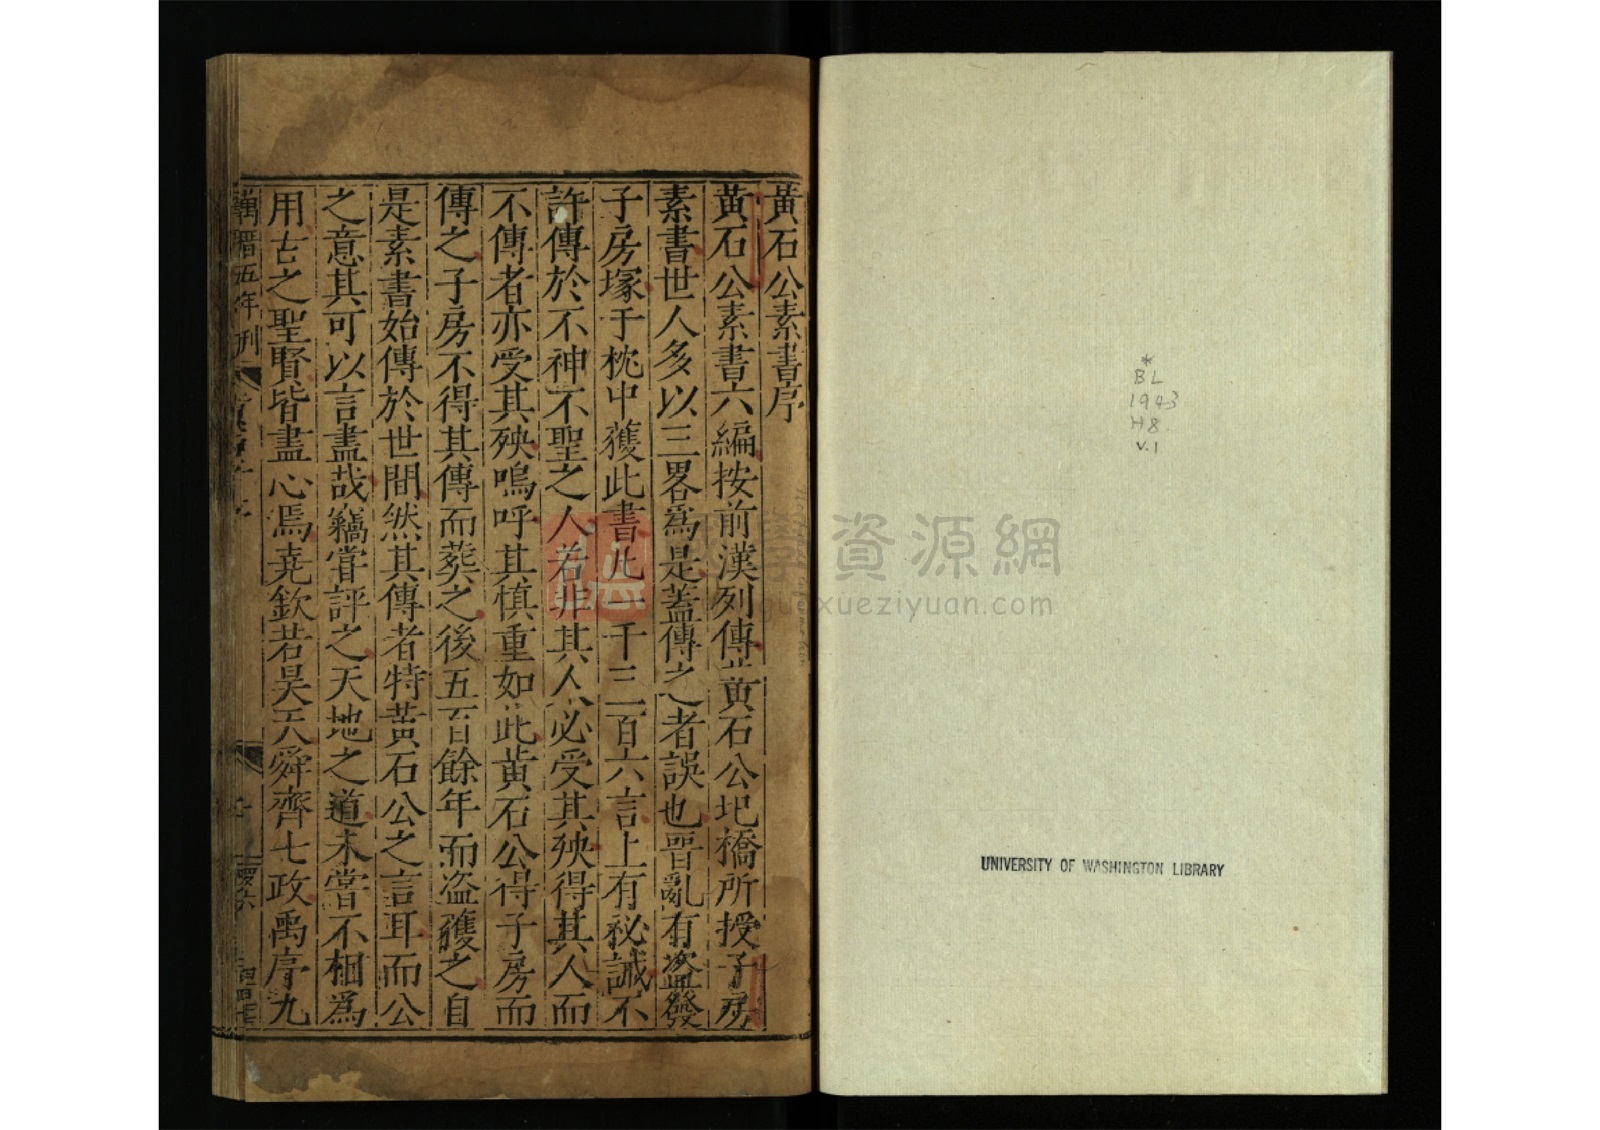 黃石公素書序
黃石公素書六編按前漢列傳黃石公圯橋所授子房
素書世人多以三畧爲是蓋傳之者誤也晉亂有盜發
子房塚于枕中獲此書此一千三百六言上有秘誡不
許傳於不神不聖之人若非其人必受其殃得其人而
不傳者亦受其殃嗚呼其慎重如此黃石公得子房而
傳之子房不得其傳而葬之後五百餘年而盜獲之自
是素書始傳於世間然其傳者特黃石公之言耳而公
之意其可以言盡哉竊嘗評之天地之道未嘗不相爲
用古之聖賢皆盡心焉堯欽若昊天舜齊七政禹序九
萬曆五年刊
*
BL
1943
H8
v.1
UNIVERSITY OF WASHINGTON LIBRARY
學資源網
guoxueziyuan.com